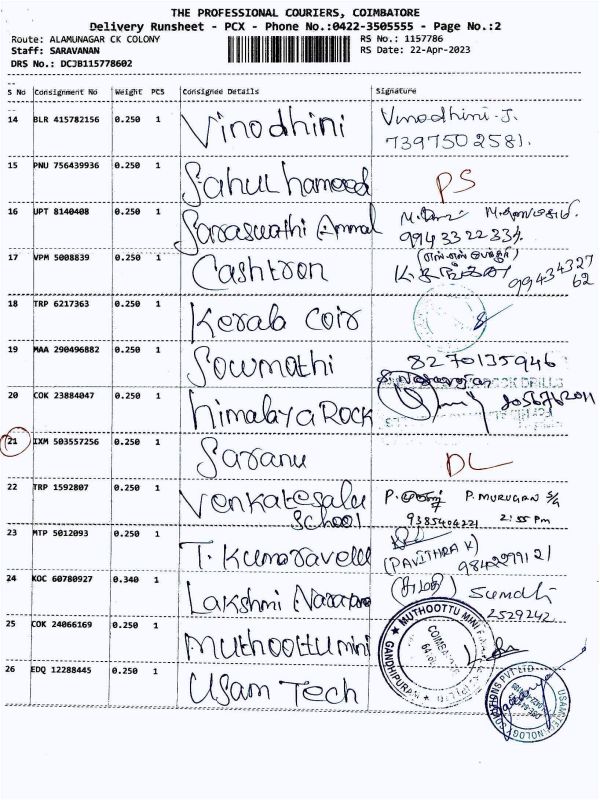 THE PROFESSIONAL COURIERS, COIMBATORE
Delivery Runsheet - PCX - Phone No.:0422-3505555 - Page No.:2
Route: ALAMUNAGAR CK COLONY
RS No.: 1157786
Staff: SARAVANAN
RS Date: 22-Apr-2023
DRS No.: DCJB115778602
S No Consignment No Weight PCS Consignee Details Signature
14 BLR 415782156 0.250 1 Vinodhini Vinodhini.J.
7397502581.
15 PNU 756439936 0.250 1 Sahul hameed PS
16 UPT 8140408 0.250 1 Saraswathi Ammal
9943322334.
17 VPM 5008839 0.250 1 Cashtron
9943432762
18 TRP 6217363 0.250 1 Kerala Coir
19 MAA 290496882 0.250 1 Sowmathi 8270135946
20 COK 23884047 0.250 1 himalaya Rock
21 IXM 503557256 0.250 1 Saranu DL
22 TRP 1592807 0.250 1 Venkatesalu School P. MURUGAN S/G
9385404221 2:55 Pm
23 MTP 5012093 0.250 1 T. Kumaravelu (PAVITHRA K)
9842999121
24 KOC 60780927 0.340 1 Lakshmi (சுமதி) Sumathi
2529242
25 COK 24066169 0.250 1 Muthoottu mini
MUTHOOTTU MINI
COIMBATORE
GANDHIPURAM
26 EDQ 12288445 0.250 1 Usam Tech